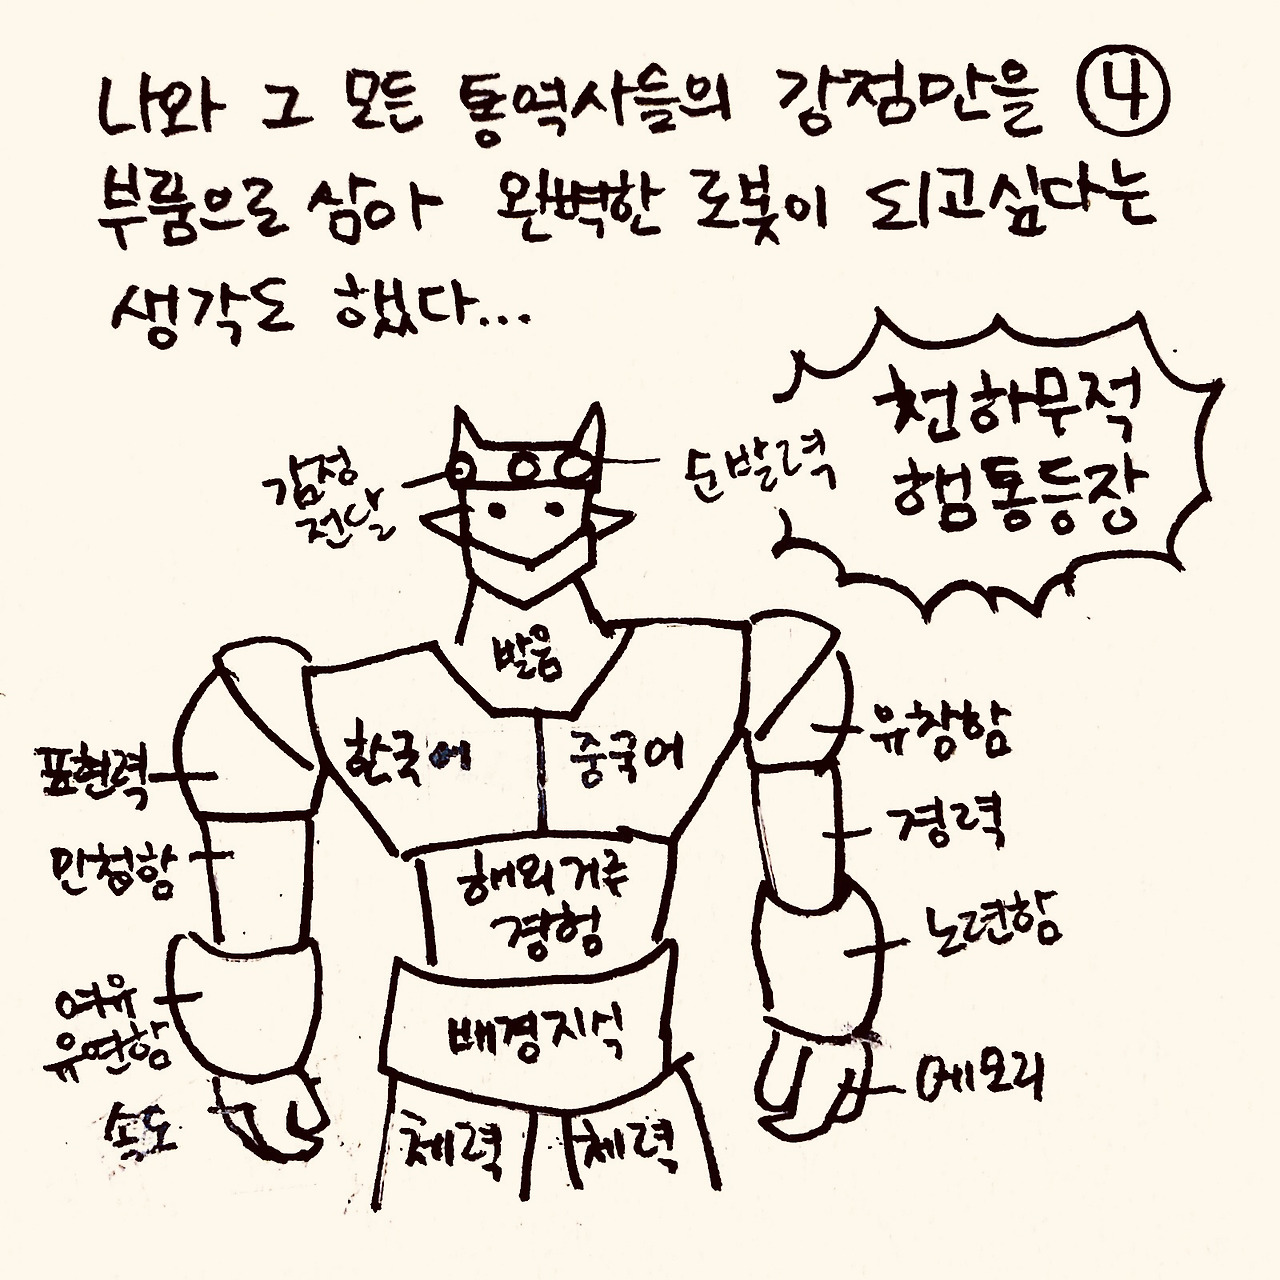 나와 그 모든 통역사들의 강점만을 ④
부품으로 삼아 완벽한 로봇이 되고싶다는
생각도 했다...
천하무적
햄통등장
감정
전달
순발력
발음
한국어
중국어
유창함
표현력
경력
민첩함
해외거주
경험
노련함
여유
유연함
배경지식
메모리
속도
체력
체력